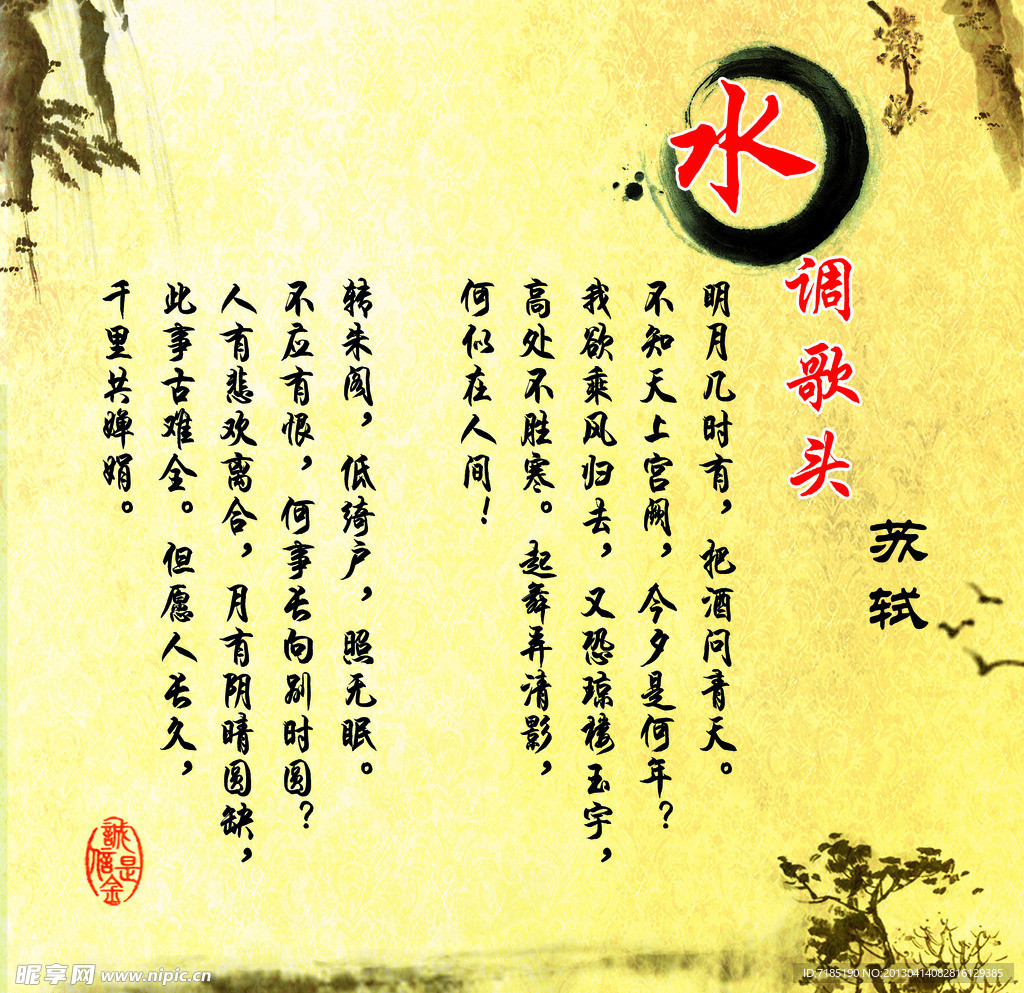 水调歌头
苏轼
明月几时有，把酒问青天。
不知天上宫阙，今夕是何年？
我欲乘风归去，又恐琼楼玉宇，
高处不胜寒。起舞弄清影，
何似在人间！
转朱阁，低绮户，照无眠。
不应有恨，何事长向别时圆？
人有悲欢离合，月有阴晴圆缺，
此事古难全。但愿人长久，
千里共婵娟。
誠信是金
昵享网 www.nipic.cn
ID:7185190 NO:20130414082816129385